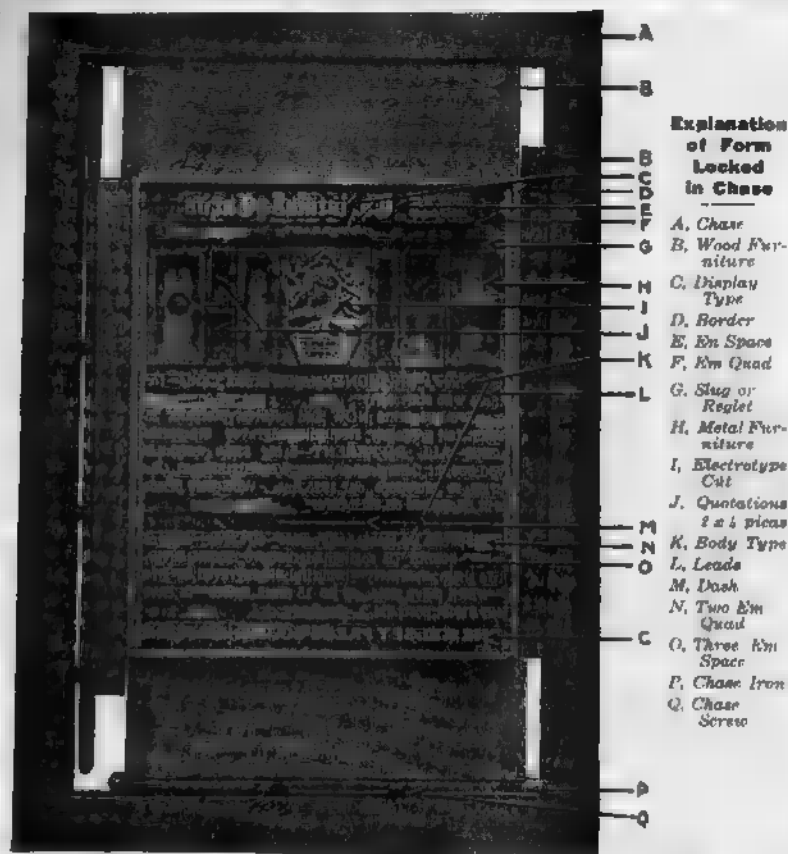 A
B
B
C
D
E
F
G
H
I
J
K
L
M
N
O
C
P
Q
Explanation
of Form
Locked
in Chase
A, Chase
B, Wood Fur-
niture
C, Display
Type
D, Border
E, En Space
F, Em Quad
G, Slug or
Reglet
H, Metal Fur-
niture
I, Electrotype
Cut
J, Quotations
picas
K, Body Type
L, Leads
M, Dash
N, Two Em
Quad
O, Three Em
Space
P, Chase Iron
Q, Chase
Screw